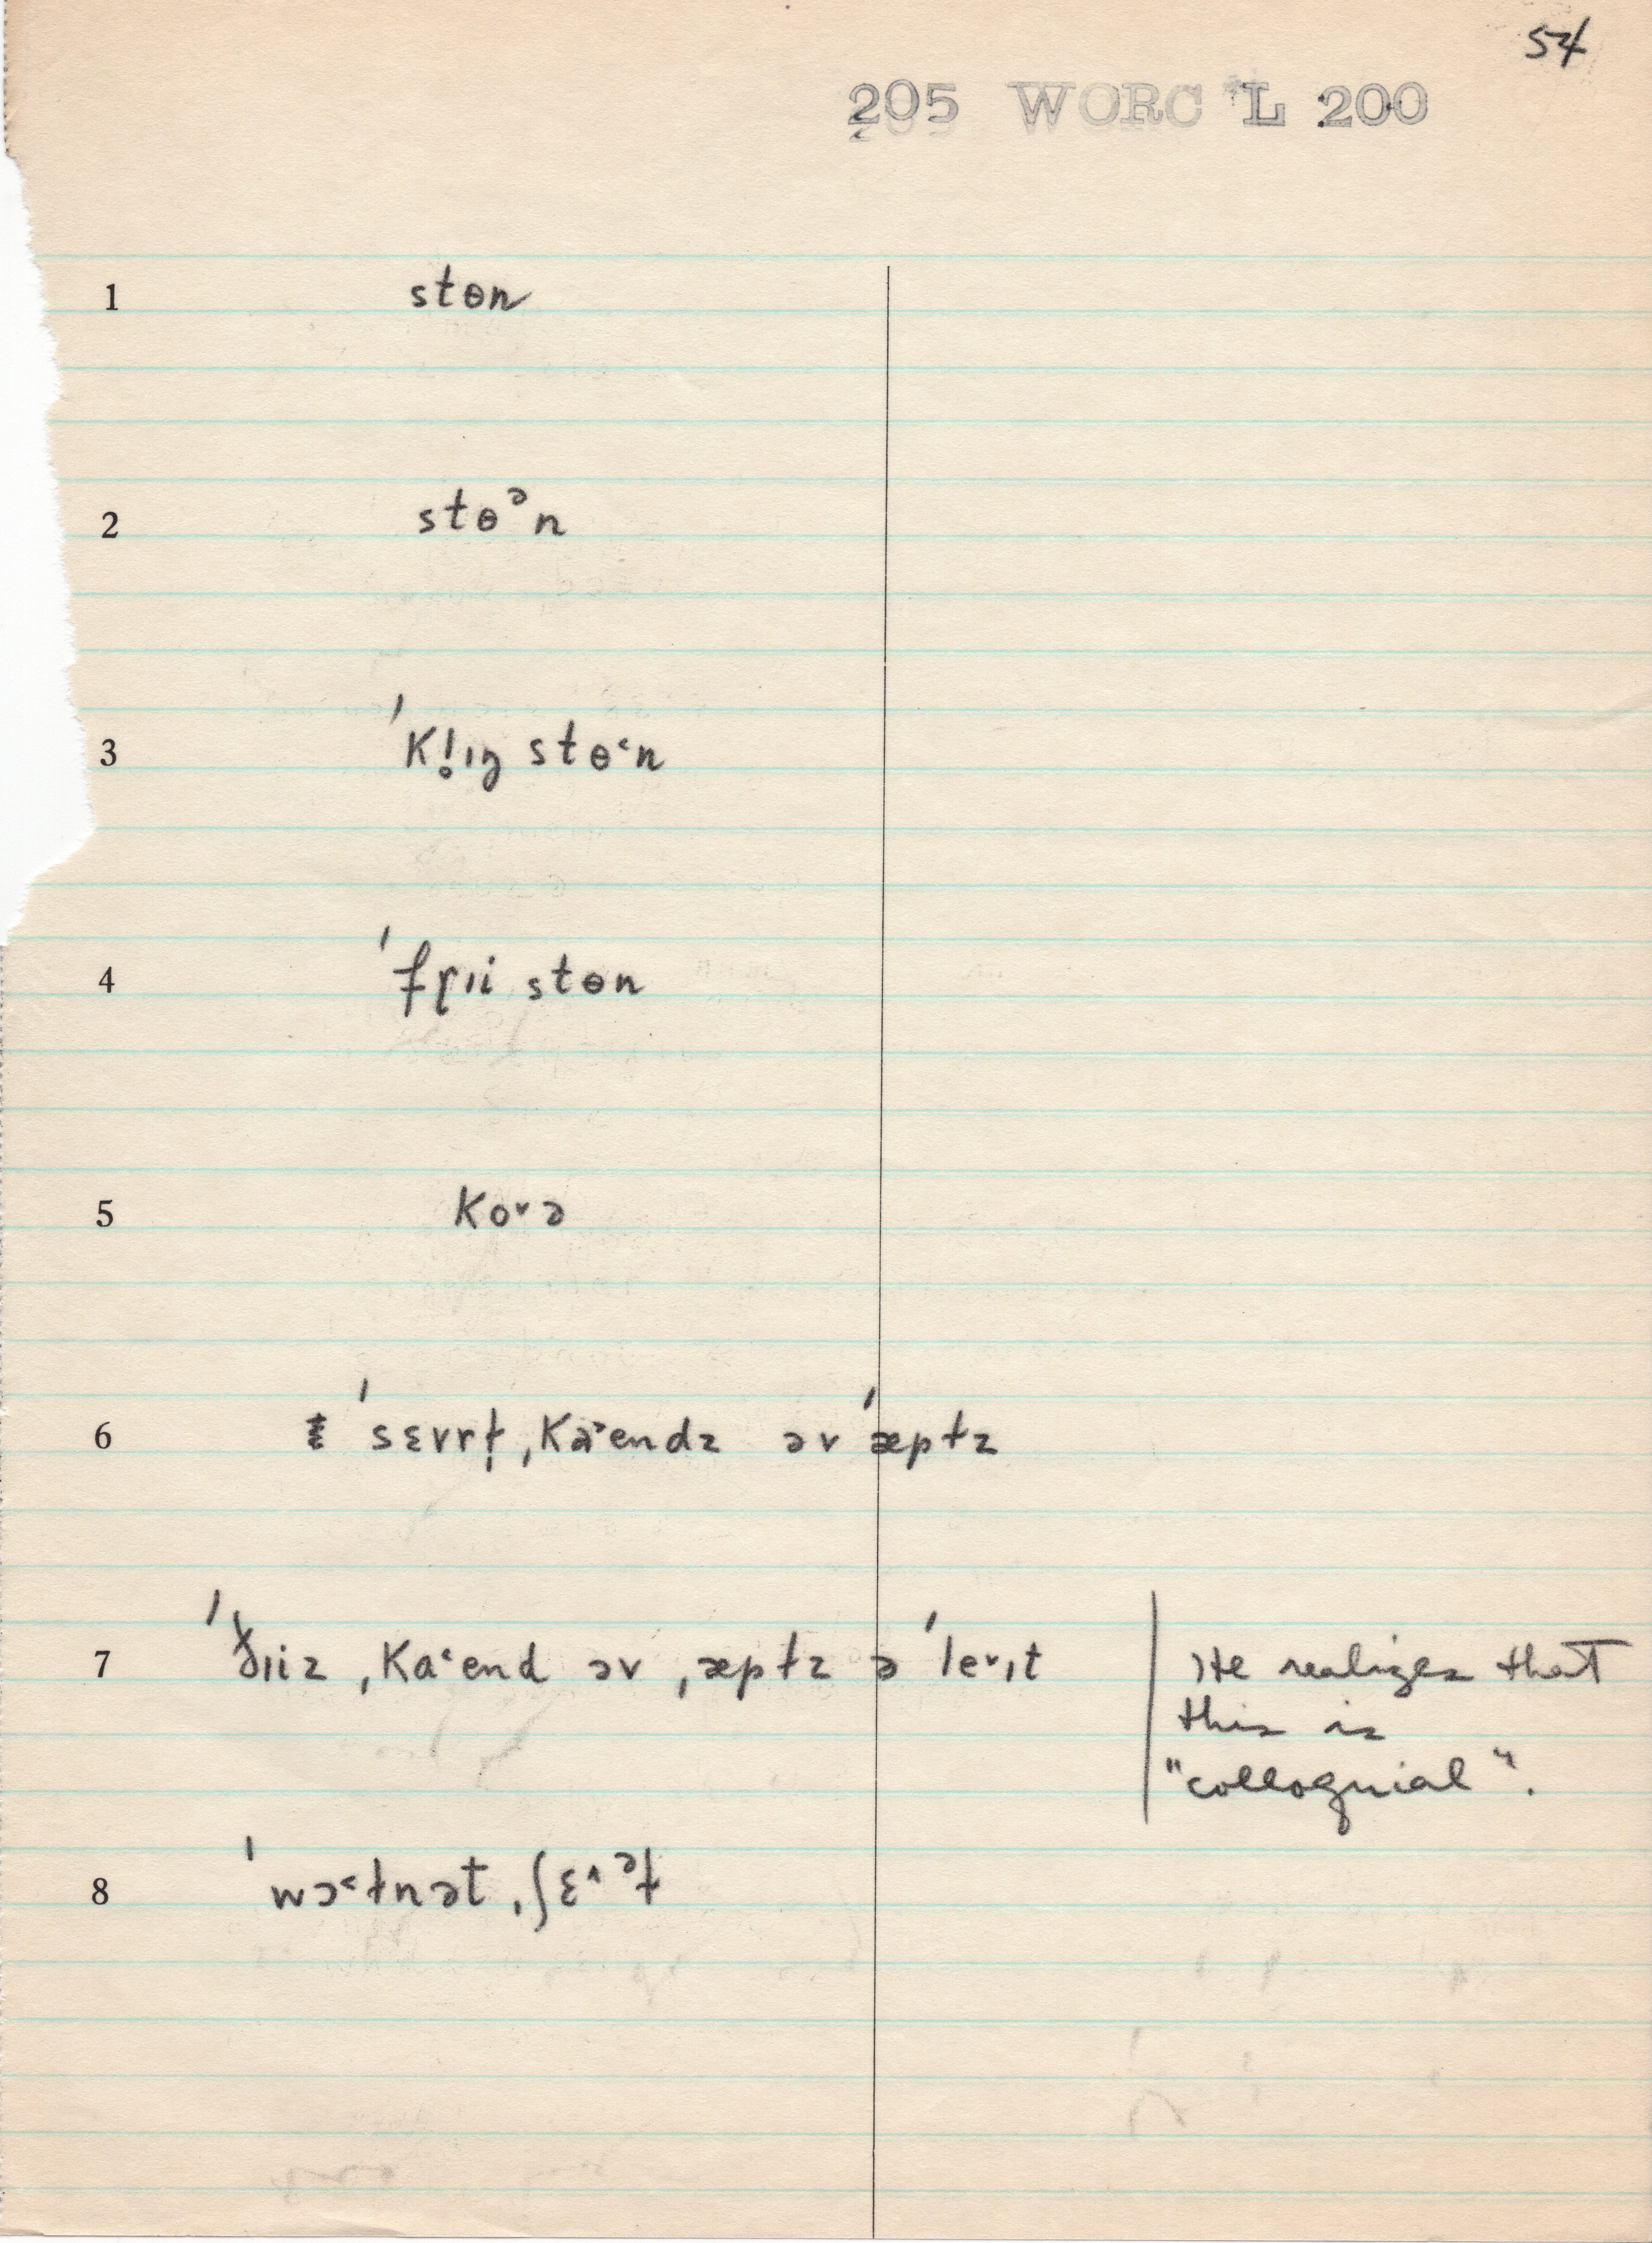 54
205 WORC L 200
1 stɵn
2 stɵᵊn
3 ˈKl̥ıŋ stɵ˂n
4 ˈfɼıi stɵn
5 Ko˅ə
6 ˈsɛvrɫ̩ ˌKa˃endz əv ˈæpɫz
7 ˈðıiz ˌKa˂end əv ˌæpɫz ə ˈle˅ıt
He realizes that
this is
"colloquial".
8 ˈwɔ˂ɫnət ˌʃɛ˄ᵊɫ